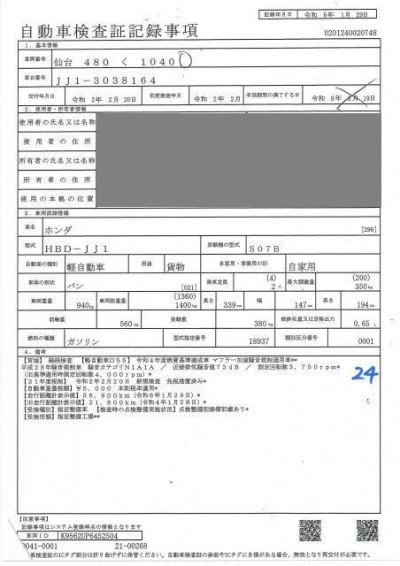 記録年月日 令和 6年 1月 29日
自動車検査証記録事項
0201240020748
1. 基本情報
車両番号 仙台 480 く 1040
車台番号 JJ1-3038164
交付年月日 令和 2年 2月 20日 初度検査年月 令和 2年 2月 有効期間の満了する日 令和 8年 2月 19日
2. 使用者・所有者情報
使用者の氏名又は名称
使用者の住所
所有者の氏名又は名称
所有者の住所
使用の本拠の位置
3. 車両詳細情報
車名 ホンダ [296]
型式 HBD-JJ1 原動機の型式 S07B
自動車の種別 軽自動車 用途 貨物 自家用・事業用の別 自家用
車体の形状 バン [021] 乗車定員 (4) 2人 最大積載量 (200) 350kg
車両重量 940kg 車両総重量 (1360) 1400kg 長さ 339cm 幅 147cm 高さ 194cm
前軸重 560kg 後軸重 380kg 総排気量又は定格出力 0.65L
燃料の種類 ガソリン 型式指定番号 18937 類別区分番号 0001
4. 備考
【宮城】 継続検査 【軽自動車OSS】 令和4年度燃費基準達成車 マフラー加速騒音規制適用車**
平成28年騒音規制車 騒音カテゴリN1A1A / 近接排気騒音値73dB / 測定回転数3,750rpm)*
(旧基準適用時測定回転数4,000rpm)*
【31年度税制】 令和2年2月20日 新規検査 先税措置済み*
【自動車重量税額】 ¥5,000 本則税率適用*
【走行距離計表示値】 56,900km (令和6年1月29日)*
【旧走行距離計表示値】 21,800km (令和4年1月28日)*
【受検種別】 指定整備車 【検査時の点検整備実施状況】 点検整備記録簿記載あり*
【受検形態】 指定整備工場*
24
【注意事項】
記録事項はシステム登録時点の情報となります
車両ID K9562UP6452504
0041-0001 21-00268
車検査証のICタグ部分は折り曲げずに保管ください。自動車検査証の券面やICタグにき損がある場合、無効となり再交付が必要です。